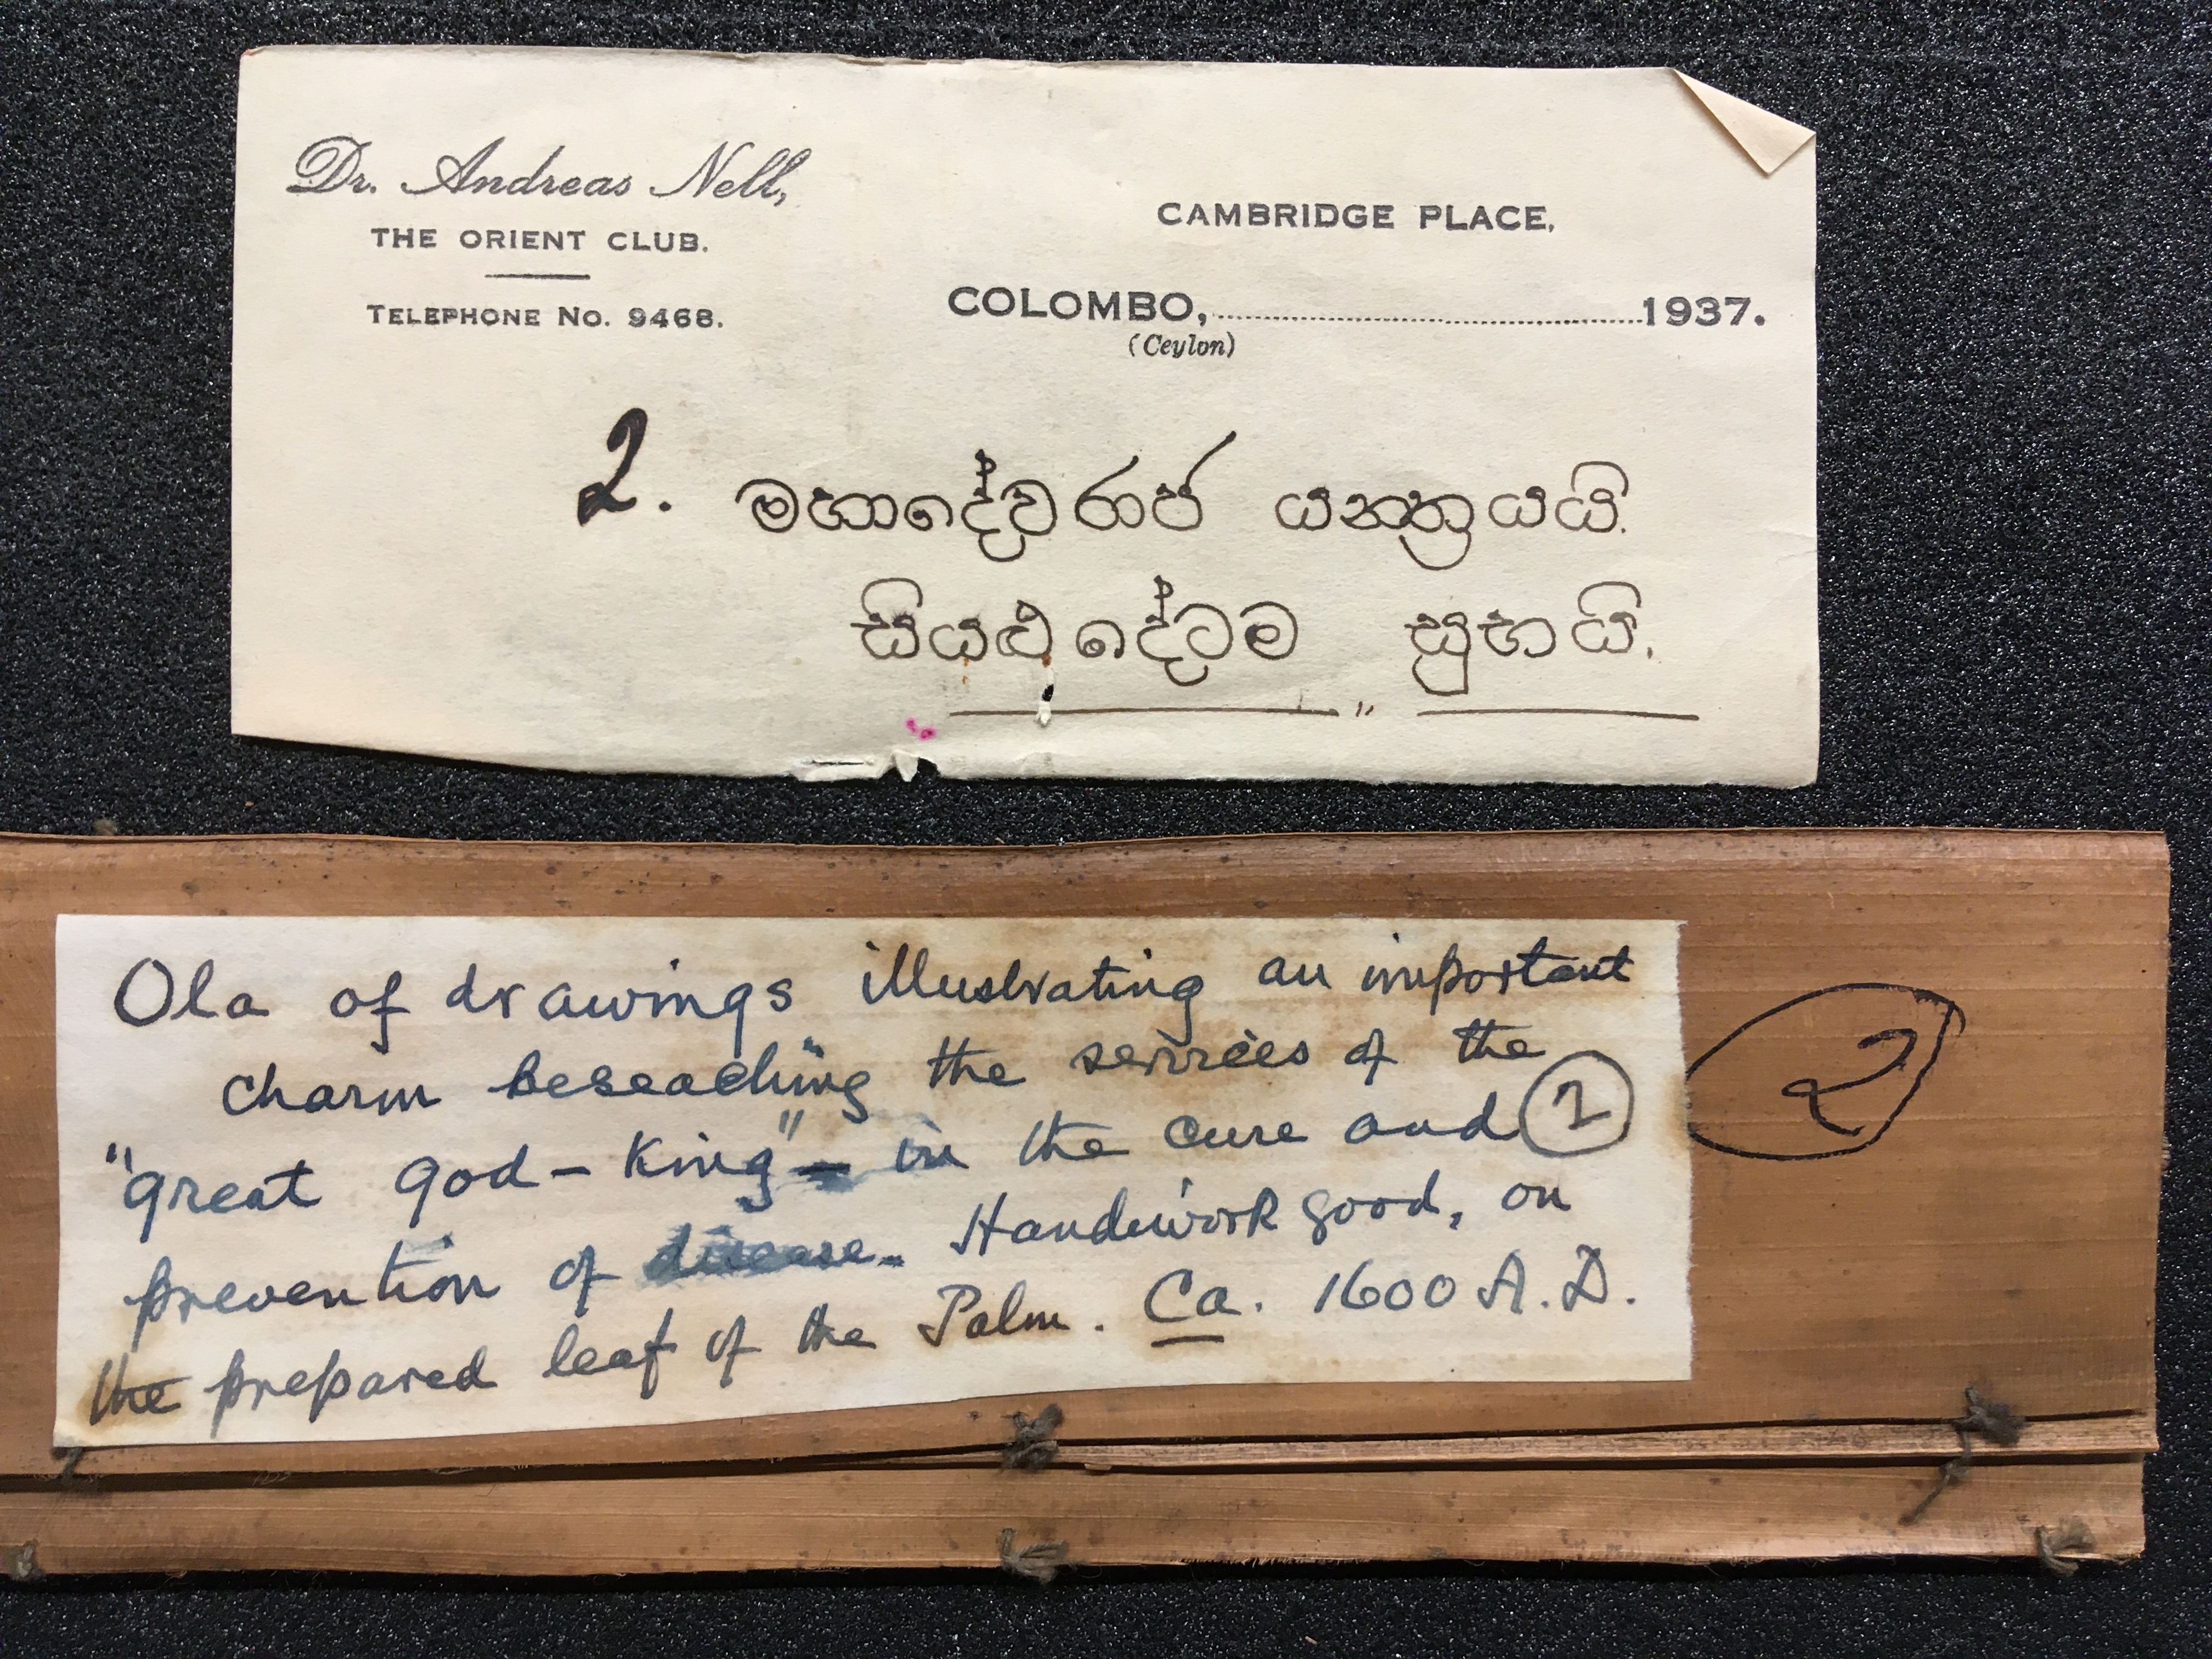 Dr. Andreas Nell,
THE ORIENT CLUB.
TELEPHONE No. 9468.
CAMBRIDGE PLACE,
COLOMBO,..............................1937.
(Ceylon)
2. මහාදේවරාජ යන්ත්‍රයයි.
සියළුදේටම සුභයි.
Ola of drawings illustrating an important
charm beseaching the services of the
"great god-King" in the cure and 2
prevention of disease. Handiwork good, on
the prepared leaf of the Palm. Ca. 1600 A.D.
2